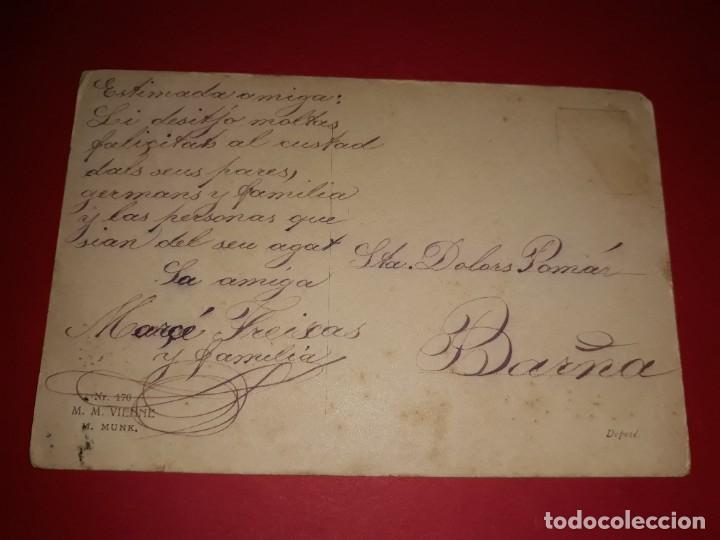 Estimada amiga:
Li desitjo moltas
falicitats al custad
dals seus pares,
germans y familia
y las personas que
sian del seu agat
Sa amiga
Marçé Freixas
y familia
Sta. Dolors Pomár
Barña
Nr. 170
M. M. VIENNE
M. MUNK.
Déposé
todocoleccion
todocoleccion.net